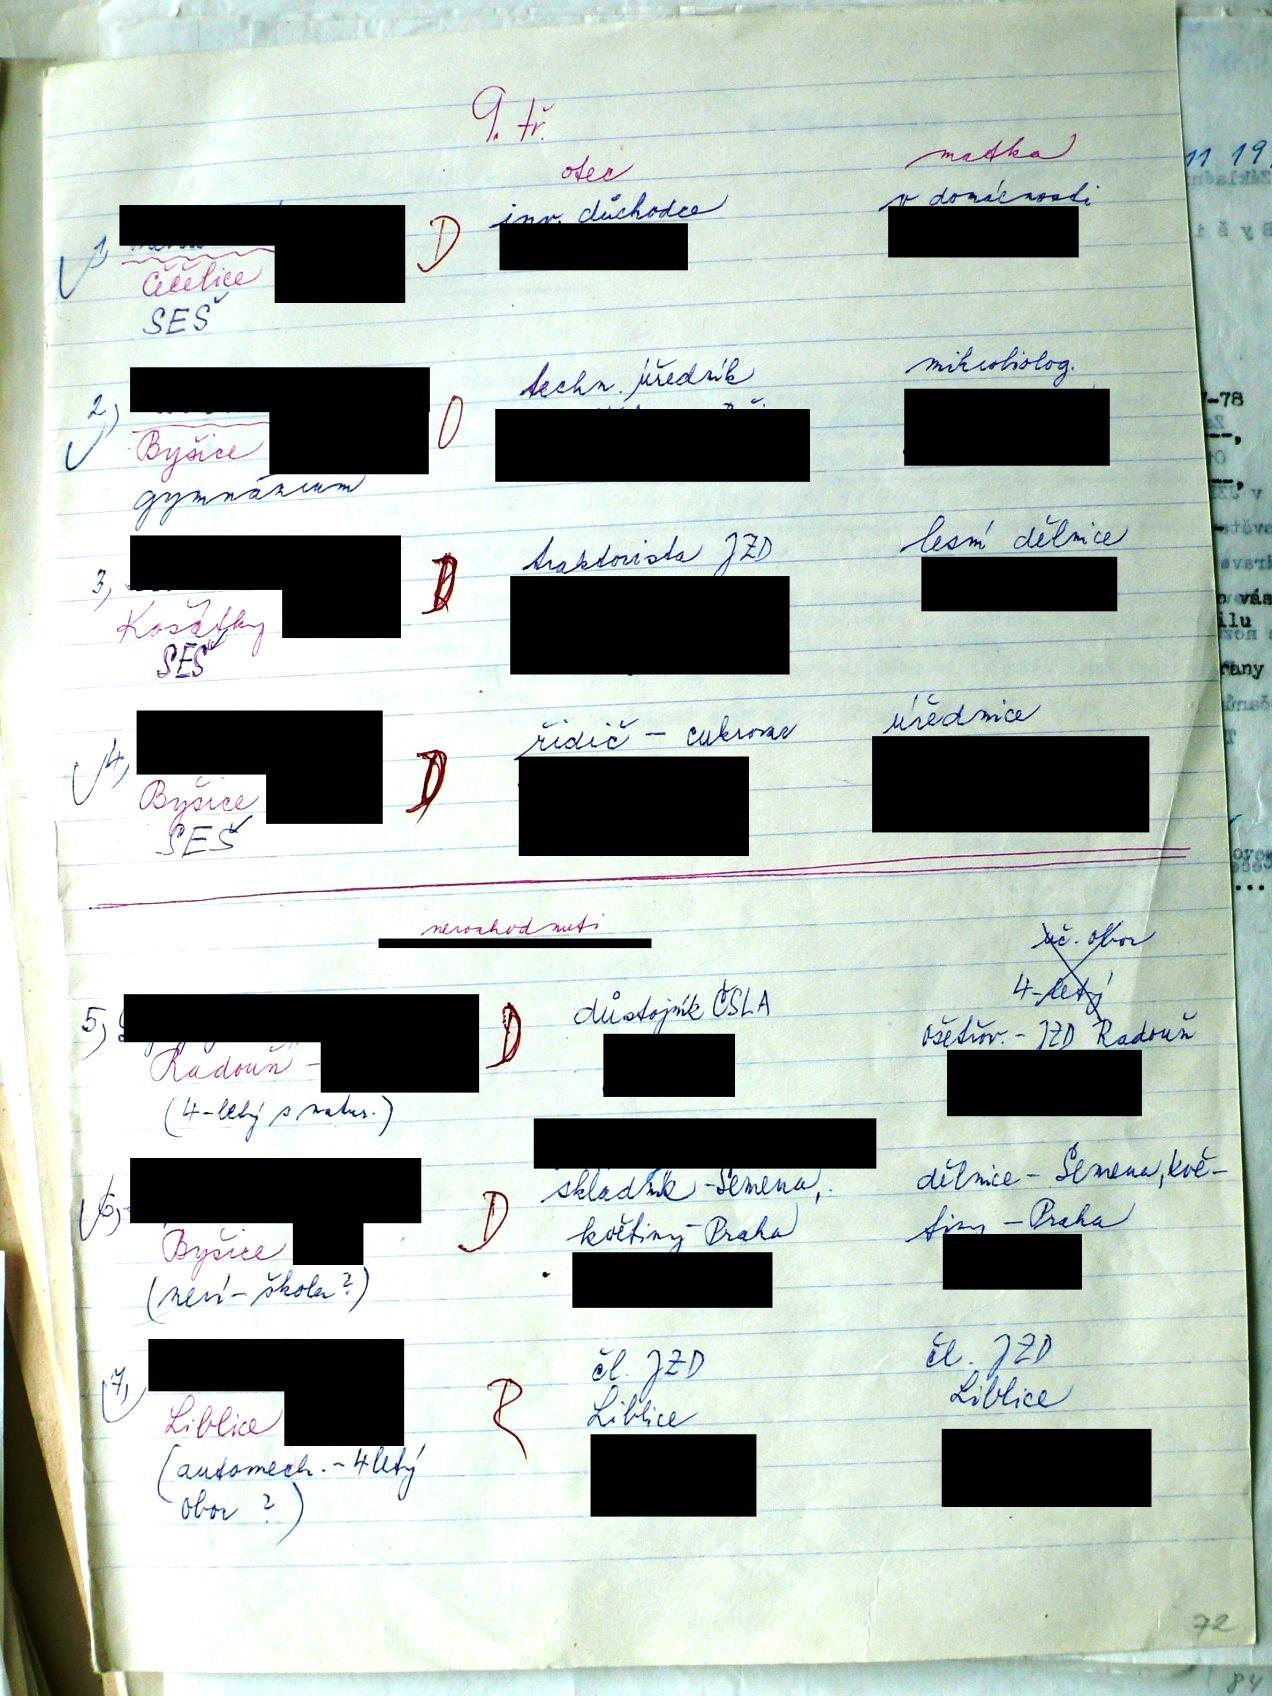 9. tř.
otec
matka
inv. důchodce
v domácnosti
1,
D
Čečelice
SEŠ
techn. úředník
mikrobiolog.
2,
Byšice
gymnázium
traktorista JZD
lesní dělnice
3,
D
Košátky
SEŠ
řidič - cukrovar
úřednice
4,
D
Byšice
SEŠ
nerozhodnuti
uč. obor
4-letý
5,
D
důstojník ČSLA
ošetřov. - JZD Radouň
Radouň -
(4-letý s matur.)
6,
D
skladník - Semena,
květiny - Praha
dělnice - Semena, kvě-
tiny - Praha
Byšice
(neví - škola?)
7,
R
čl. JZD
Liblice
čl. JZD
Liblice
Liblice
(automech. - 4letý
obor ?)
72
84
11 19
7-78
o vás
ilu
rany